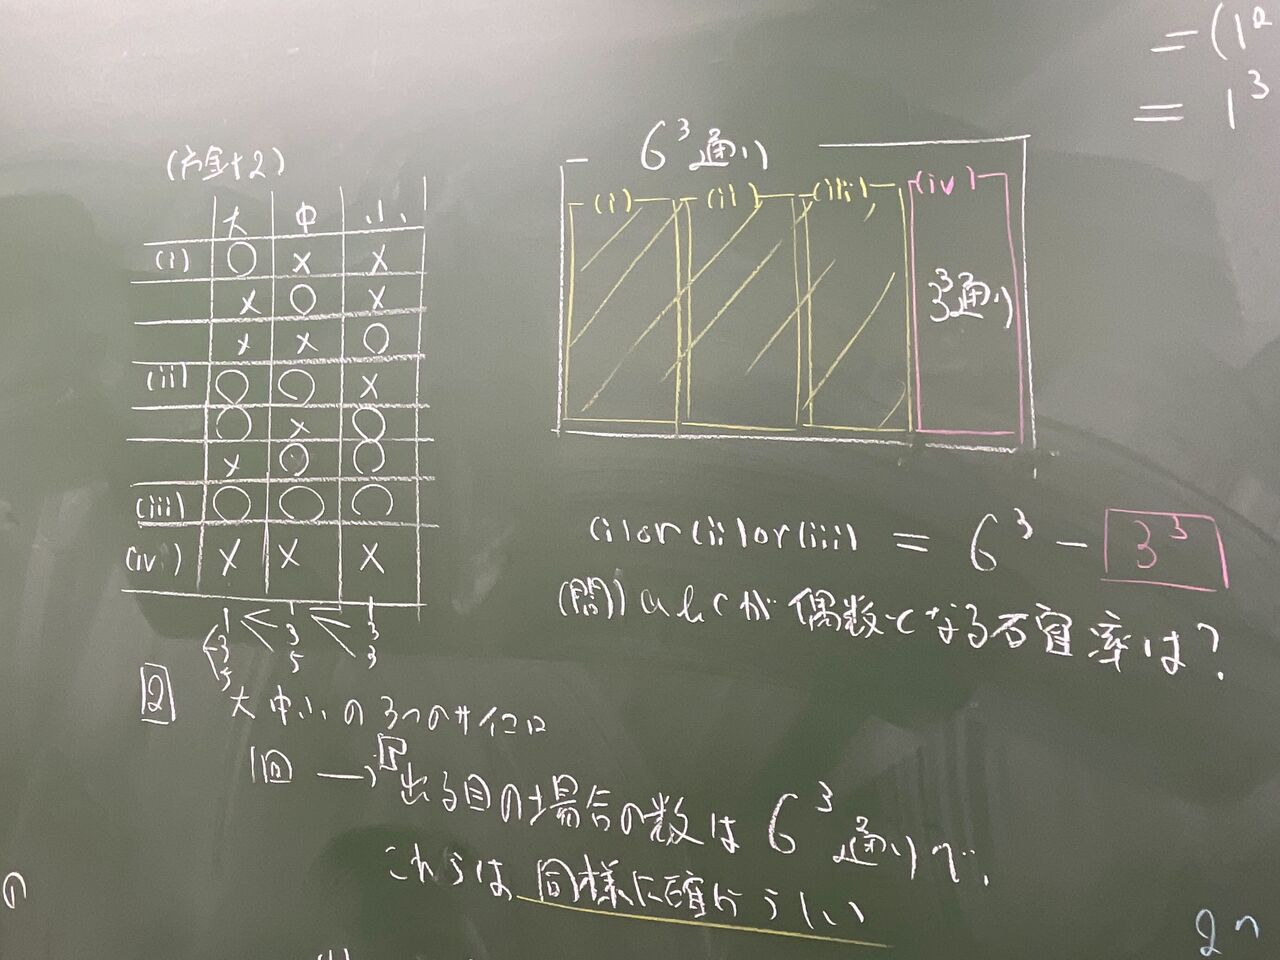 (方針2)
大 中 小
(i) ○ × ×
× ○ ×
× × ○
(ii) ○ ○ ×
○ × ○
× ○ ○
(iii) ○ ○ ○
(iv) × × ×
1 1 1
3 3 3
5 5 3
6³通り
(i) (ii) (iii) (iv)
3³通り
(i)or(ii)or(iii) = 6³ - 3³
(問) abcが偶数となる確率は?
2 大中小の3つのサイコロ
1回 → 出る目の場合の数は 6³通りで、
これらは同様に確からしい
= (1²
= 1³
の
2n